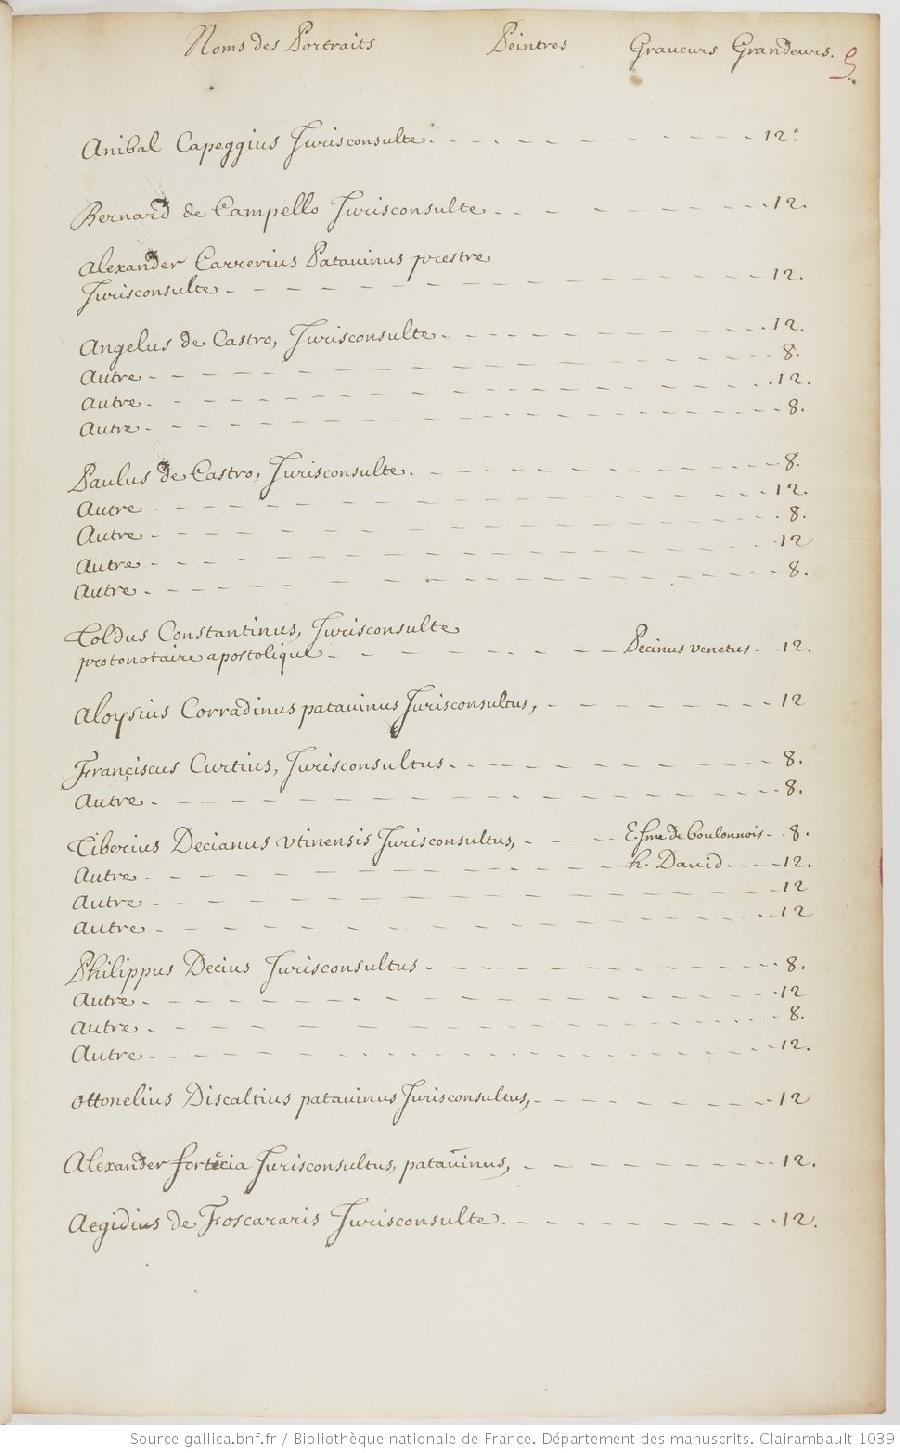 Noms des Portraits Peintres Graveurs Grandeurs. 5
Anibal Capeggius Jurisconsulte. 12.
Bernard de Campello Jurisconsulte. 12.
Alexander Carrerius Patavinus prestre
Jurisconsulte. 12.
Angelus de Castro, Jurisconsulte. 12.
Autre. 8.
Autre. 12.
Autre. 8.
Paulus de Castro, Jurisconsulte. 8.
Autre 12.
Autre. 8.
Autre. 12
Autre. 8.
Coldus Constantinus, Jurisconsulte
protonotaire apostolique. Pecinus venetus. 12.
Aloysius Corradinus patavinus Jurisconsultus, 12
Françiscus Curtius, Jurisconsultus. 8.
Autre. 8.
Tiberius Decianus Vtinensis Jurisconsultus, Esme de Boulonnois. 8.
Autre. h. David. 12.
Autre. 12
Autre. 12
Philippus Decius Jurisconsultus. 8.
Autre. 12
Autre. 8.
Autre. 12.
Ottonelius Discaltius patavinus Jurisconsultus, 12
Alexander Jurisconsultus, patavinus, 12.
Aegidius de Foscararis Jurisconsulte. 12.
Source gallica.bnf.fr / Bibliothèque nationale de France. Département des manuscrits. Clairambault 1039